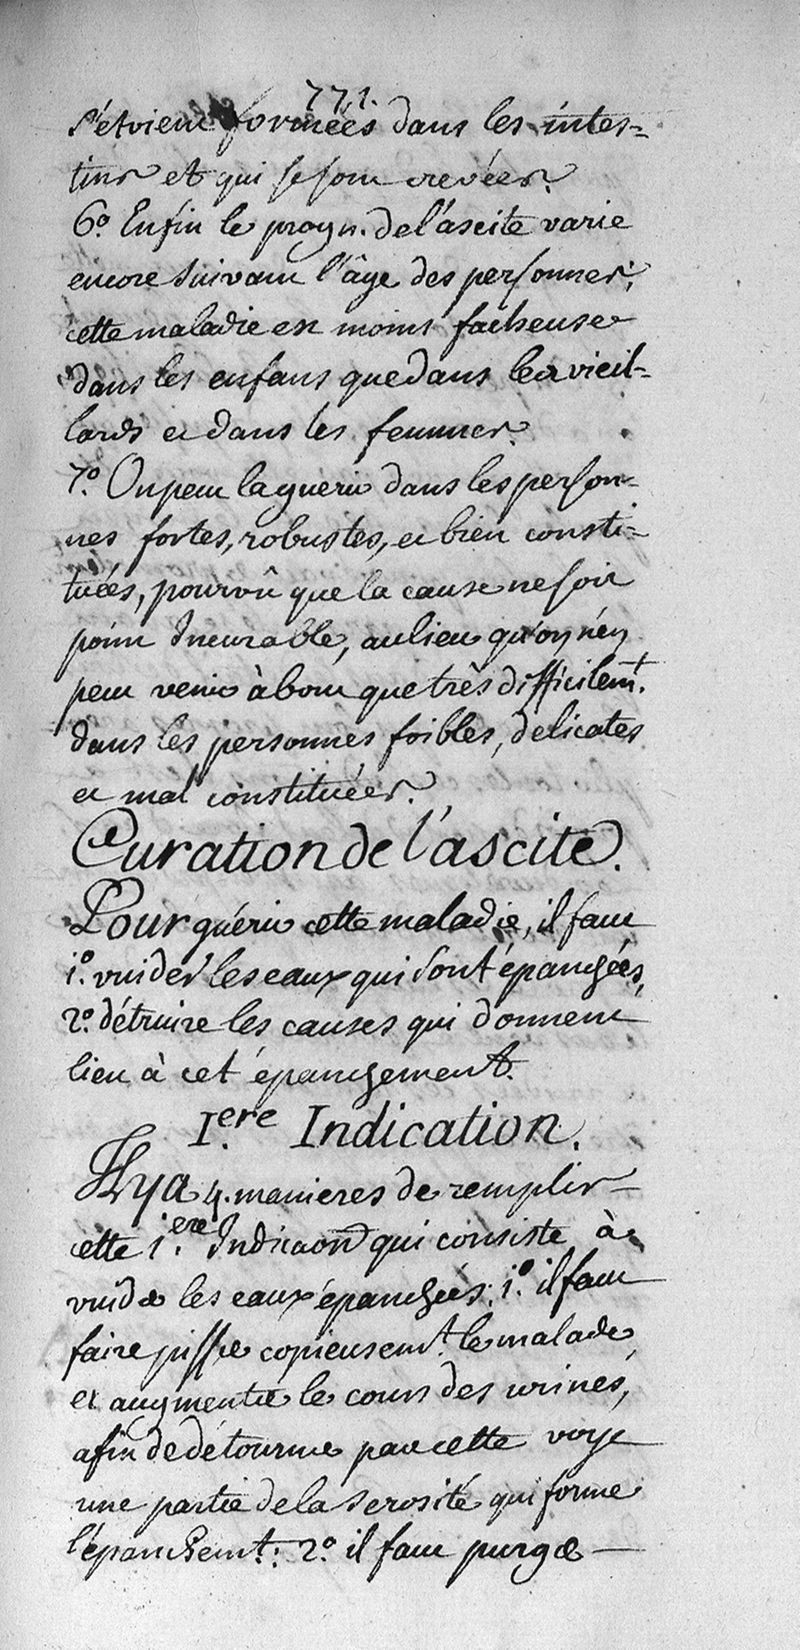 771.
s'étoient formées dans les intes-
tins et qui se sont crevées.
6.º Enfin le progn. de l'ascite varie
encore suivant l'âge des personnes;
cette maladie est moins facheuse
dans les enfans que dans les vieil-
lards et dans les femmes.
7.º On peut la guerir dans les person-
nes fortes, robustes, et bien consti-
tuées, pourvû que la cause ne soit
point Incurable, au lieu qu'on n'en
peut venir à bout que très difficilem.t
dans les personnes foibles, delicates
et mal constituées.
Curation de l'ascite.
Pour guérir cette maladie, il faut
1.º vuider les eaux qui sont épanchées,
2.º détruire les causes qui donnent
lieu à cet épanchement.
I.ere Indication.
Il y a 4. manieres de remplir
cette 1.ere Indicaon qui consiste à
vuider les eaux épanchées; 1.º il faut
faire pisser copieusem.t le malade
et augmenter le cours des urines,
afin de détourner par cette voye
une partie de la serosité qui forme
l'épanchem.t; 2.º il faut purger